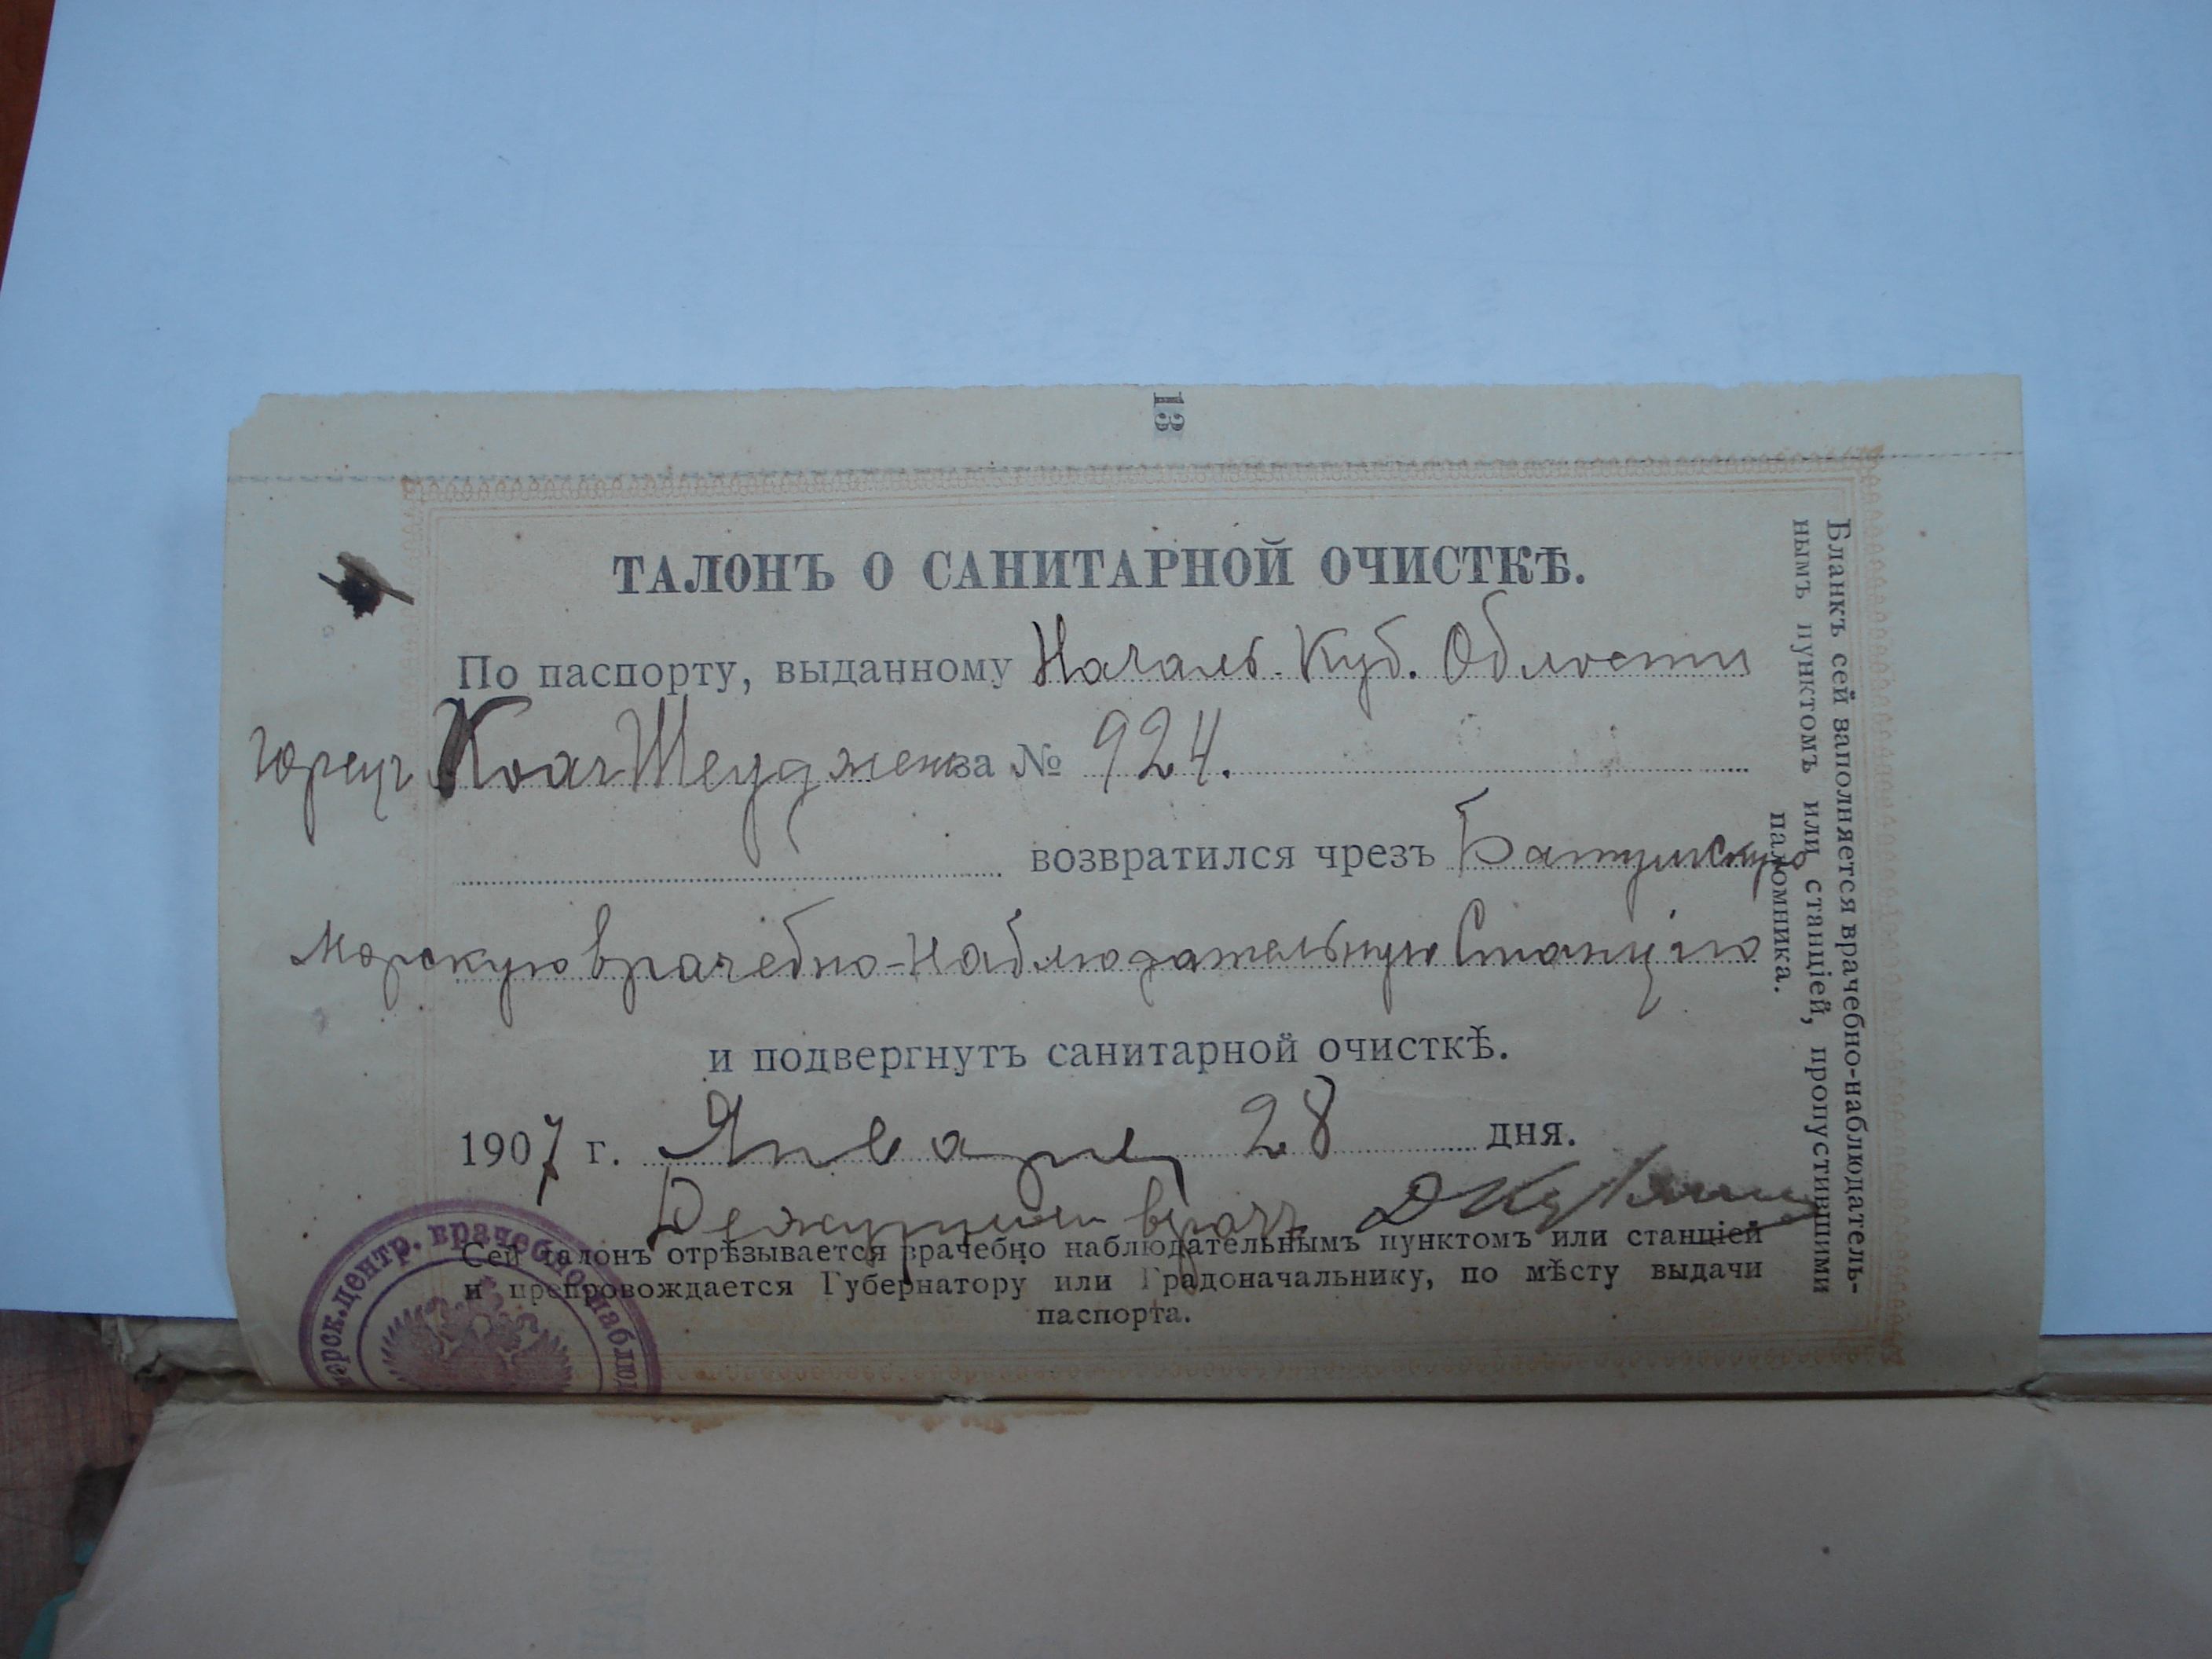 13
ТАЛОНЪ О САНИТАРНОЙ ОЧИСТКѢ.
По паспорту, выданному Началь. Куб. Области
Коач Шеудженза № 924.
возвратился чрезъ Батумскую
Морскую врачебно-Наблюдательную Станцію
и подвергнутъ санитарной очисткѣ.
1907 г. Января 28 дня.
Дежурный врачъ
Сей талонъ отрѣзывается врачебно наблюдательнымъ пунктомъ или станціей
и препровождается Губернатору или Градоначальнику, по мѣсту выдачи
паспорта.
Бланкъ сей заполняется врачебно-наблюдатель-
нымъ пунктомъ или станціей, пропустившими
паломника.
центр. врачебно наблюд